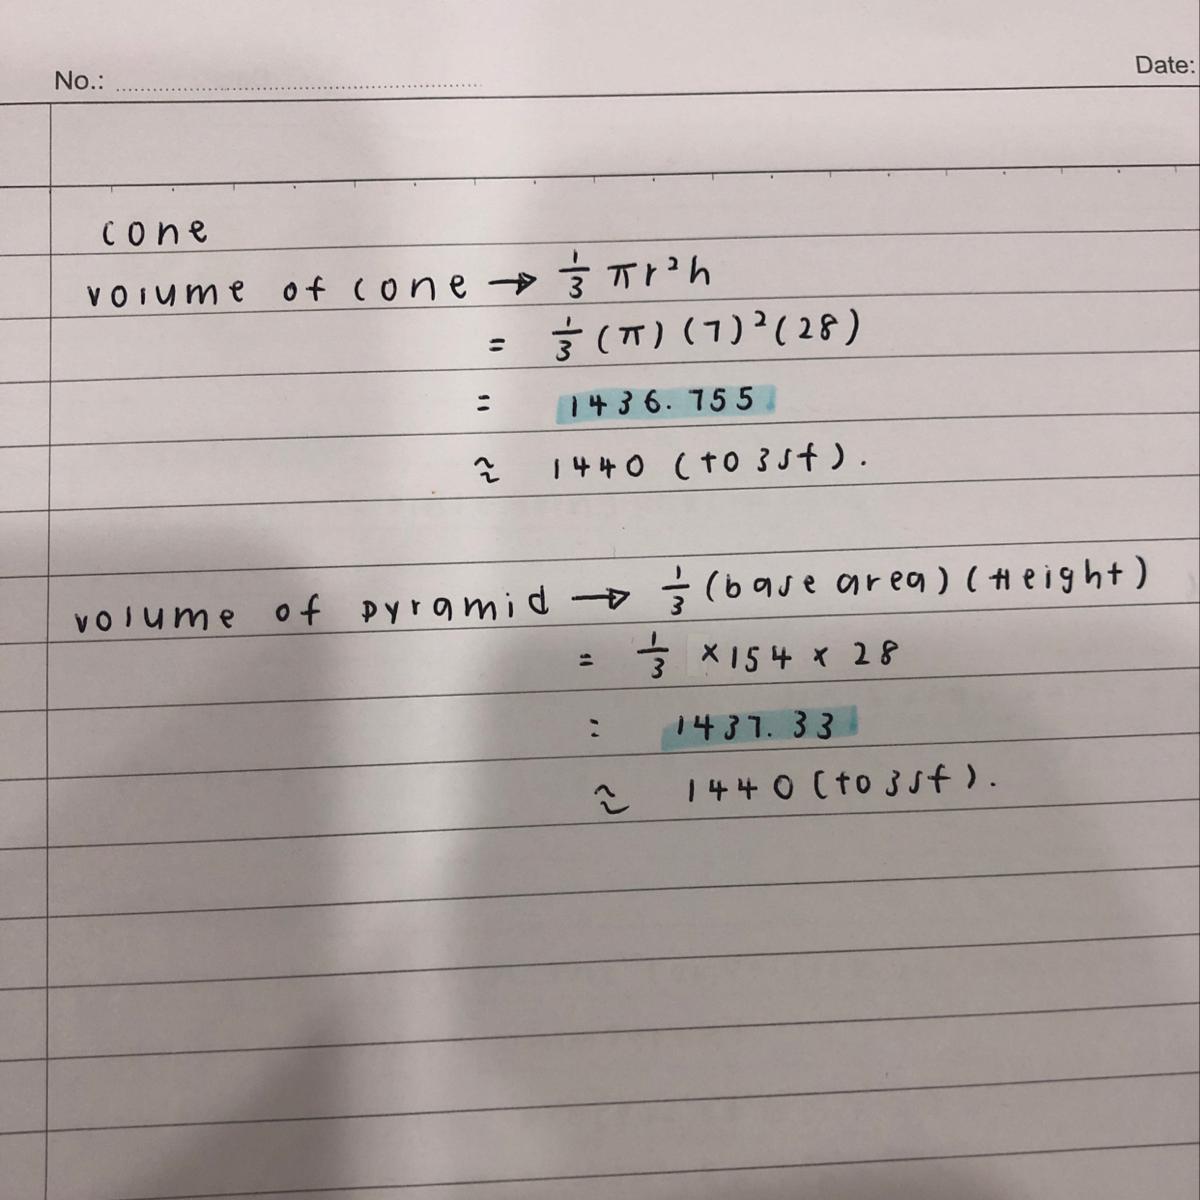 No.:
Date:
cone
volume of cone → 1/3 πr²h
= 1/3 (π) (7)² (28)
= 1436.755
≈ 1440 (to 3sf).
volume of pyramid → 1/3 (base area) (Height)
= 1/3 × 154 × 28
= 1437.33
≈ 1440 (to 3sf).